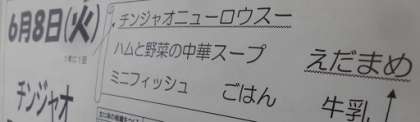 6月8日(火)
チンジャオニューロウスー
ハムと野菜の中華スープ
ミニフィッシュ
ごはん
えだまめ
牛乳
チンジャオ